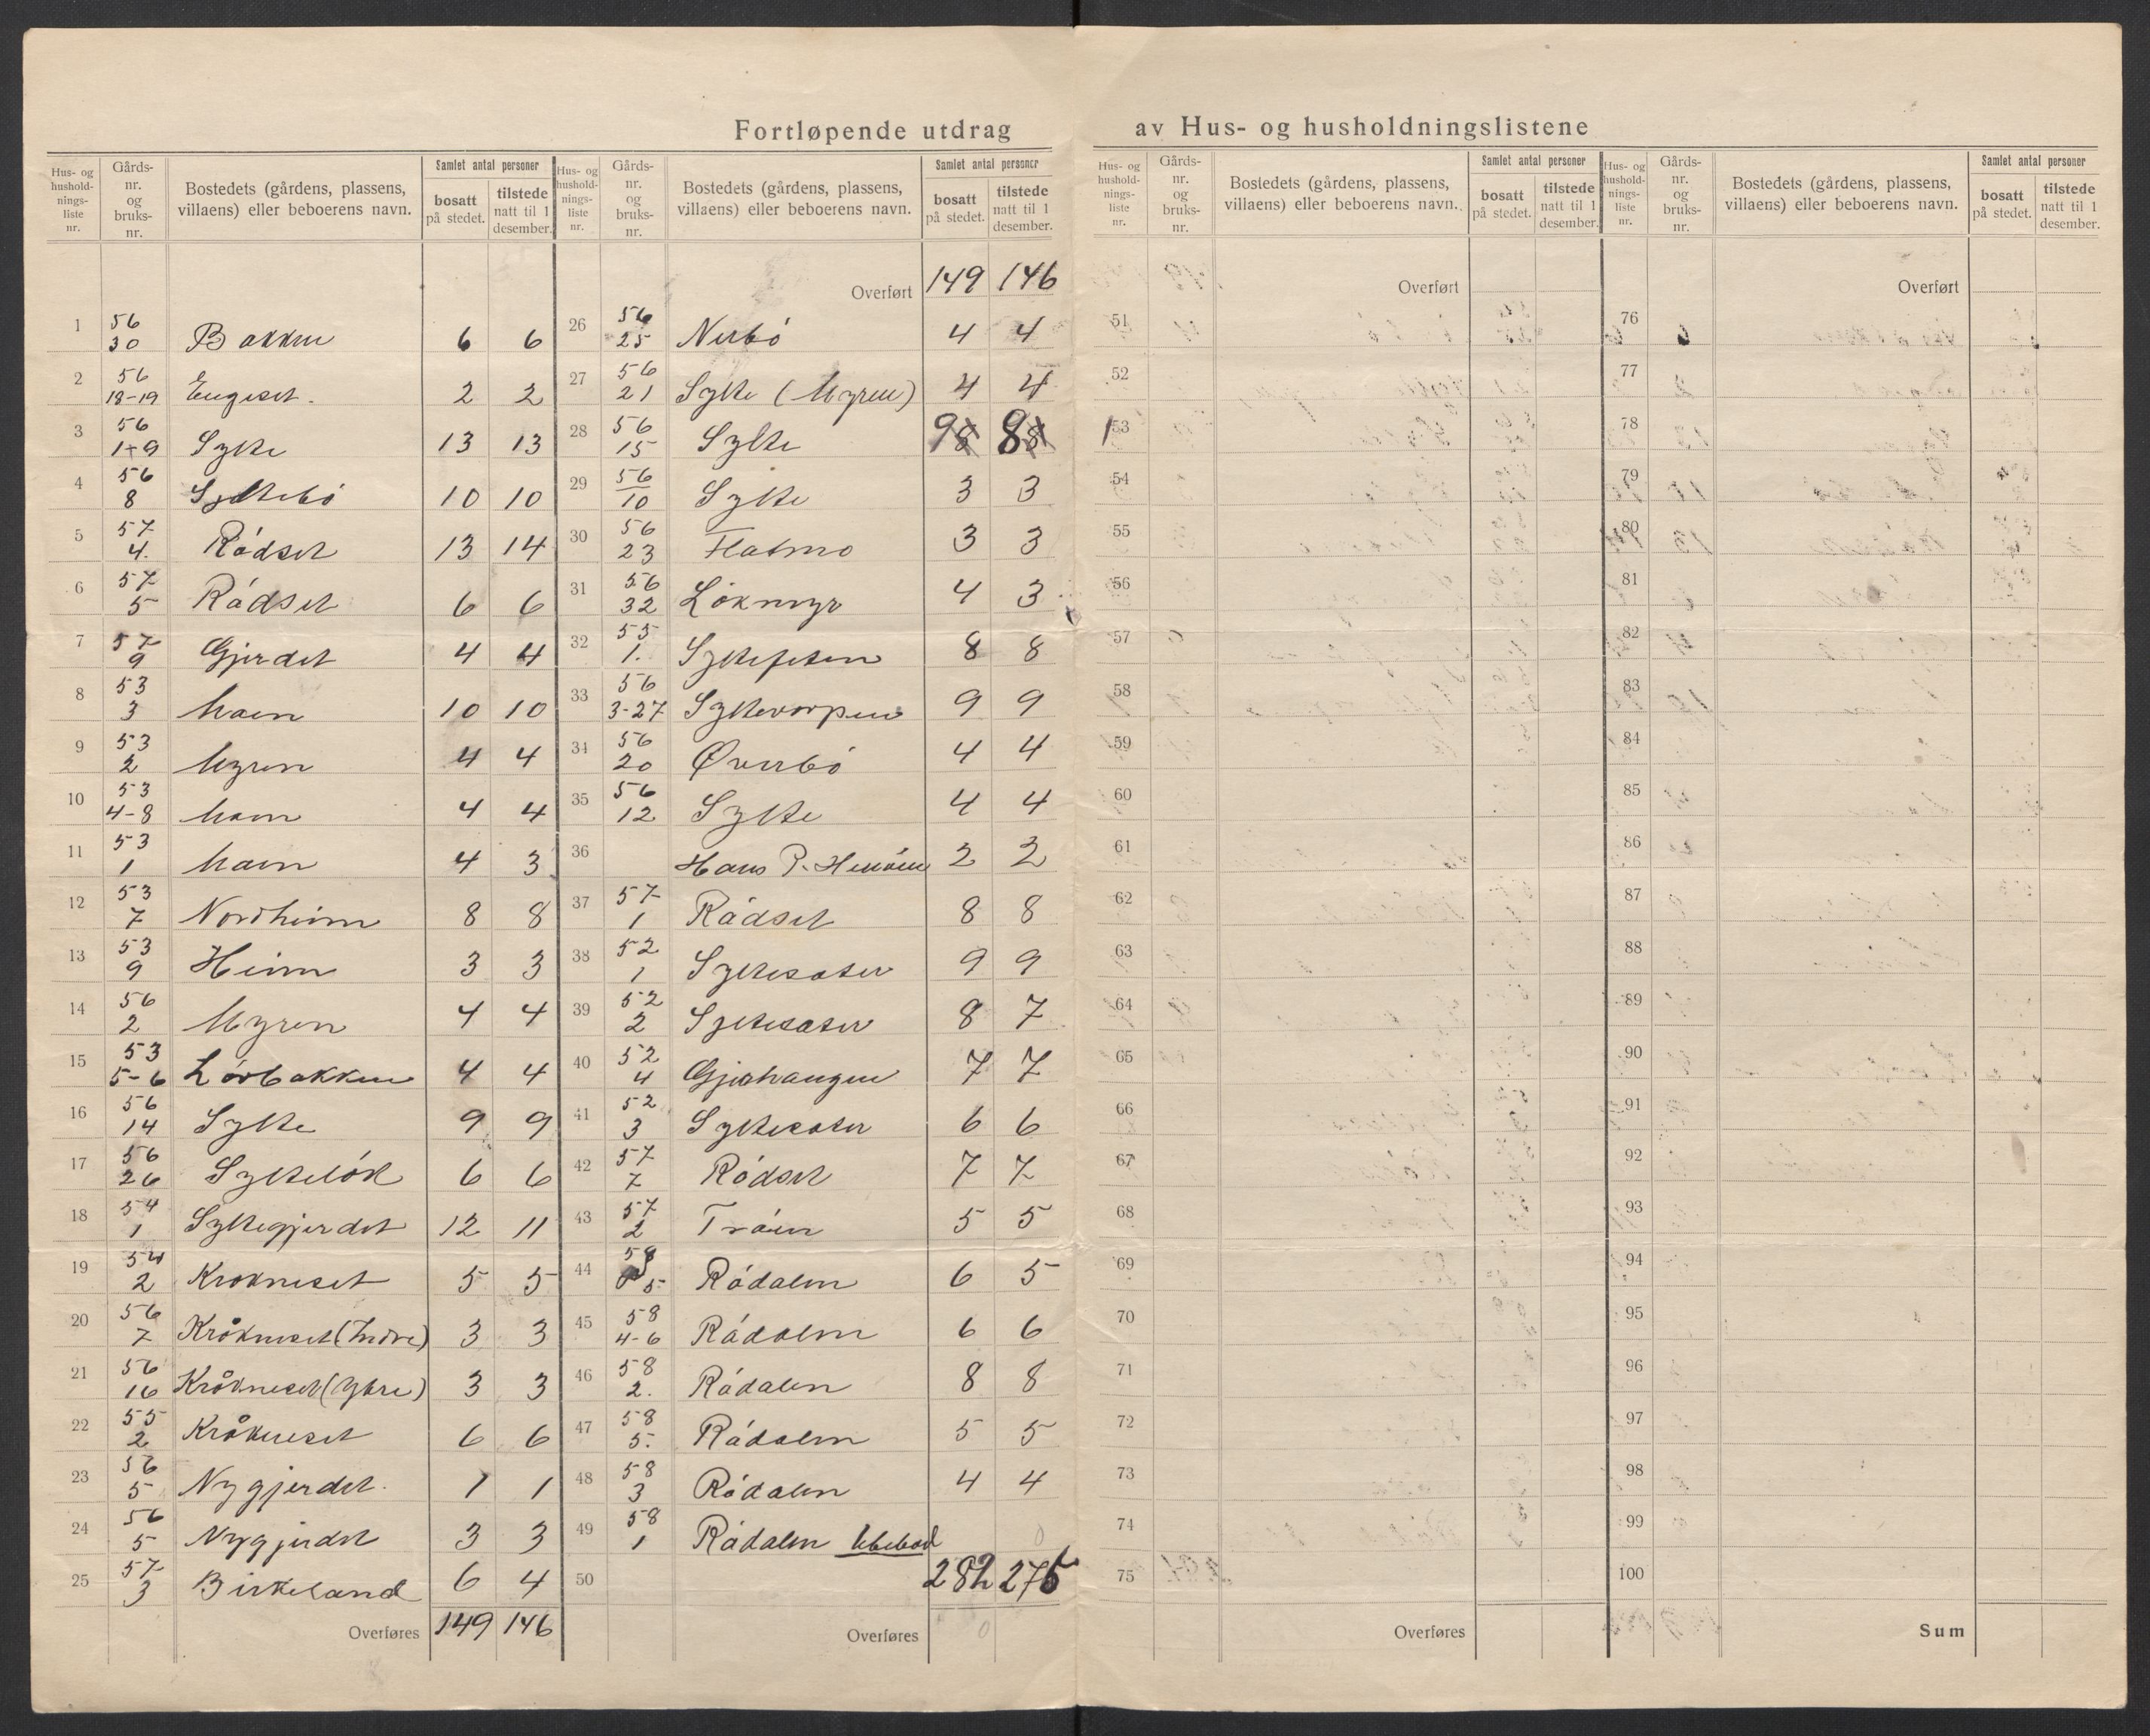 Fortløpende utdrag av Hus- og husholdningslistene
Hus- og husholdningsliste nr. Gårds- nr. og bruks- nr. Bostedets (gårdens, plassens, villaens) eller beboerens navn. Samlet antal personer bosatt på stedet. tilstede natt til 1 desember.
1 56 30 Bakken 6 6
2 56 18-19 Engeset. 2 2
3 56 1+9 Sylte 13 13
4 56 8 Syltebó 10 10
5 57 4. Rødset 13 14
6 57 5 Rádset 6 6
7 57 9 Gjerdet 4 4
8 53 3 Moen 10 10
9 53 2 Myren 4 4
10 53 4-8 Moen 4 4
11 53 1 Moen 4 3
12 53 7 Nordheim 8 8
13 53 9 Heim 3 3
14 56 2 Myren 4 4
15 53 5-6 Lórbakken 4 4
16 56 14 Sylte 9 9
17 56 26 Syltelók 6 6
18 54 1 Syltegjerdet 12 11
19 54 2 Krokneset 5 5
20 56 7 Kråkneset (Indre) 3 3
21 56 16 Kråkneset (Ytre) 3 3
22 55 2 Kråkneset 6 6
23 56 5 Nygjerdet. 1 1
24 56 5 Nygjerdet 3 3
25 57 3 Birkeland 6 4
Overføres 149 146
Hus- og husholdningsliste nr. Gårds- nr. og bruks- nr. Bostedets (gårdens, plassens, villaens) eller beboerens navn. Samlet antal personer bosatt på stedet. tilstede natt til 1 desember.
Overført 149 146
26 56 25 Nerbó 4 4
27 56 21 Sylte (Myren) 4 4
28 56 15 Sylte 9 8
29 56 10 Sylte 3 3
30 56 23 Flatmo 3 3
31 56 32 Lókmyr 4 3
32 55 1. Sylteseten 8 8
33 56 3-27 Syltevorpen 9 9
34 56 20 Øverbó 4 4
35 56 12 Sylte 4 4
36 Hans P. 2 2
37 57 1 Rádset 8 8
38 52 1 Syltesæter 9 9
39 52 2 Syltesæter 8 7
40 52 4 Gjerhaugen 7 7
41 52 3 Syltesæter 6 6
42 57 7 Ródset 7 7
43 57 2 Tróen 5 5
44 58 5 Ródalen 6 5
45 58 4-6 Ródalen 6 6
46 58 2. Ródalen 8 8
47 58 5. Ródalen 5 5
48 58 3 Ródalen 4 4
49 58 1 Ródalen Ubebod 0
50 282 275
Overføres 0
Hus- og husholdningsliste nr. Gårds- nr. og bruks- nr. Bostedets (gårdens, plassens, villaens) eller beboerens navn. Samlet antal personer bosatt på stedet. tilstede natt til 1 desember.
Overført
51
52
53
54
55
56
57
58
59
60
61
62
63
64
65
66
67
68
69
70
71
72
73
74
75
Overføres
Hus- og husholdningsliste nr. Gårds- nr. og bruks- nr. Bostedets (gårdens, plassens, villaens) eller beboerens navn. Samlet antal personer bosatt på stedet. tilstede natt til 1 desember.
Overført
76
77
78
79
80
81
82
83
84
85
86
87
88
89
90
91
92
93
94
95
96
97
98
99
100
Sum